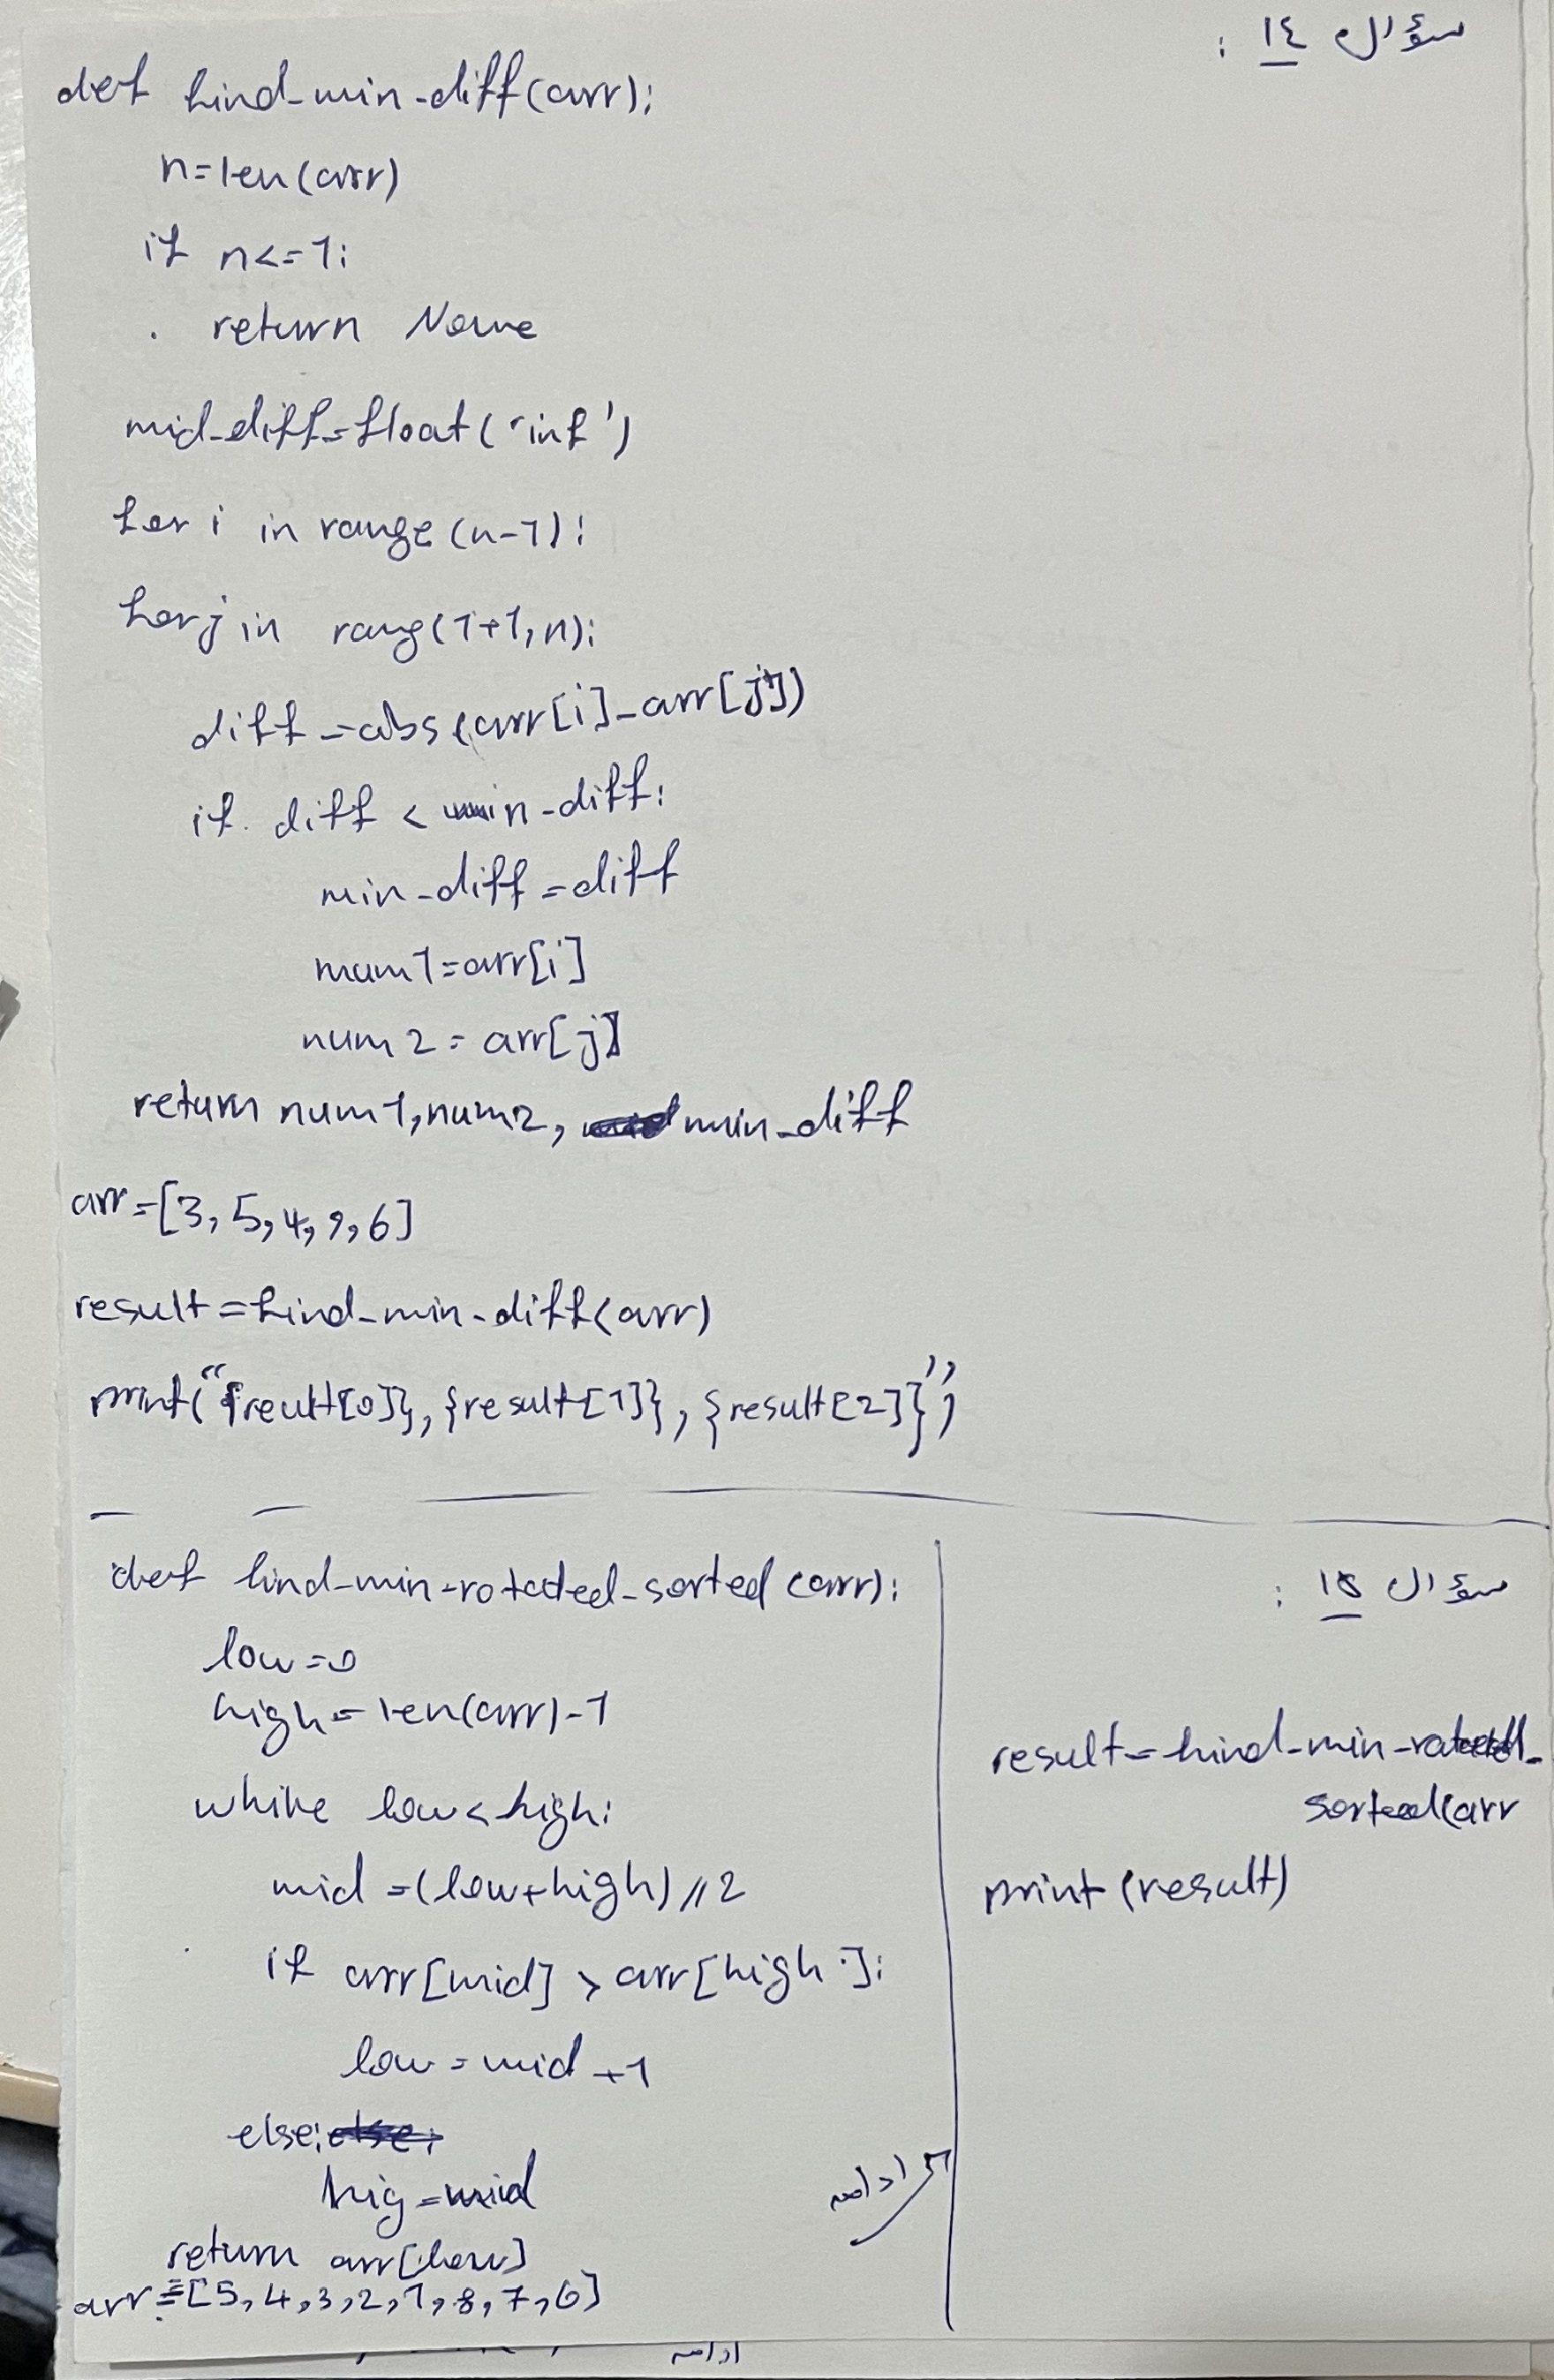 سؤال ١٤ :
def find-min-diff(arr):
n=len(arr)
if n<=1:
return None
mid-diff=float('inf')
for i in range(n-1):
for j in rang(1+1,n):
diff=abs(arr[i]-arr[j])
if diff < min-diff:
min-diff=diff
mum1=arr[i]
num2=arr[j]
return num1,num2, min-diff
arr=[3,5,4,9,6]
result=find-min-diff(arr)
print("{reult[0]},{result[1]},{result[2]}")
سؤال ١٥ :
def find-min-rotated-sorted(arr):
low=0
high=len(arr)-1
while low<high:
mid=(low+high)//2
if arr[mid]>arr[high]:
low=mid+1
else:
hig=mid
return arr[low]
arr=[5,4,3,2,1,8,7,6]
ادامه
result=find-min-rotated-
sorted(arr
print(result)
ادامه